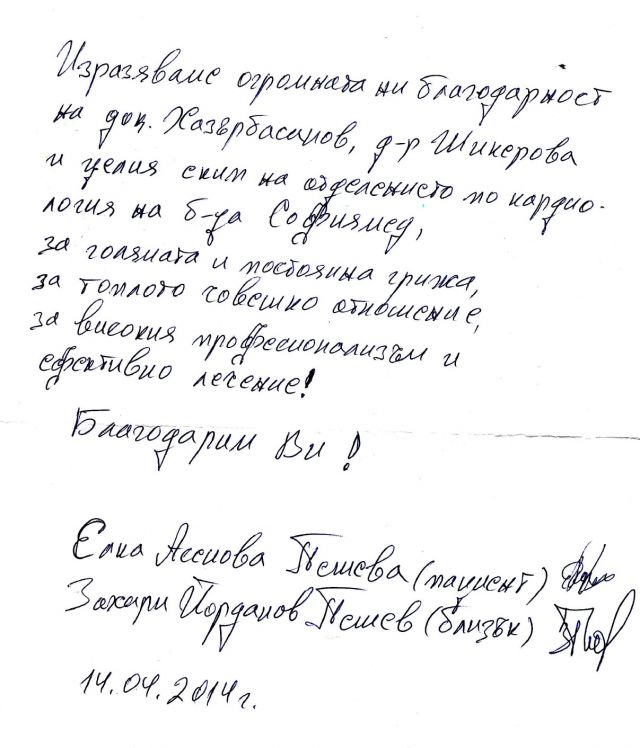 Изразяваме огромната ни благодарност
на доц. Хазърбасанов, д-р Шикерова
и целия екип на отделението по кардио-
логия на б-ца Софиямед,
за голямата и постоянна грижа,
за топлото човешко отношение,
за високия професионализъм и
ефективно лечение!
Благодарим Ви!
Елка Асенова Пешева (пациент)
Захари Йорданов Пешев (близък)
14.04.2014г.